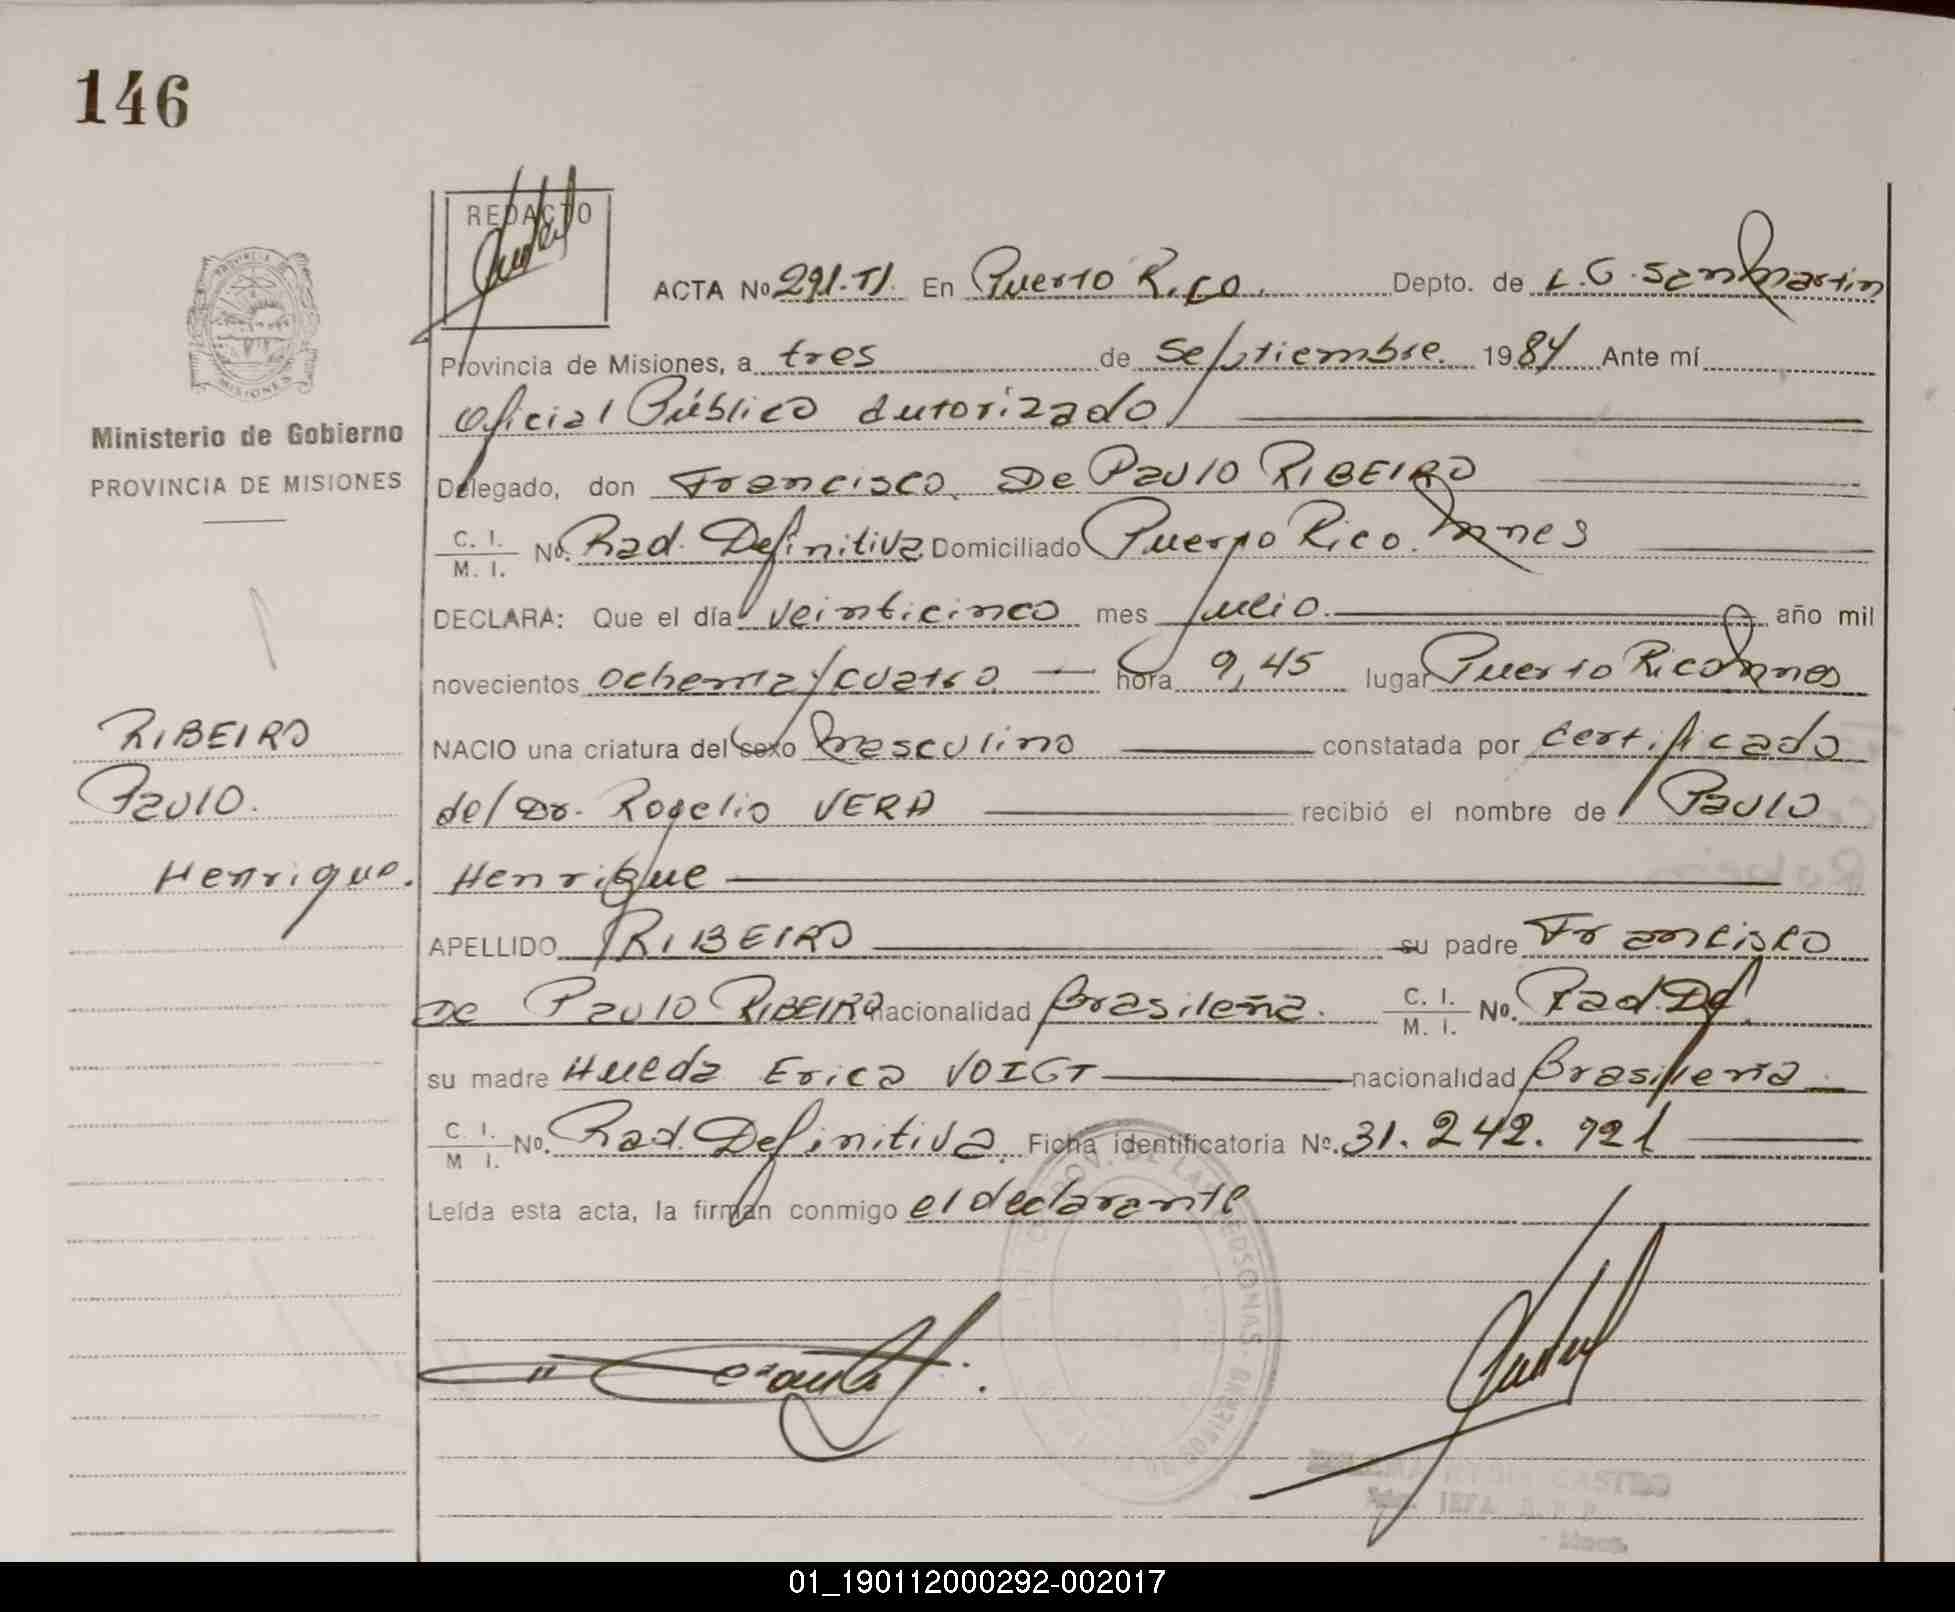 146
REDACTO
PROVINCIA DE
MISIONES
ACTA No 291.TI. En Puerto Rico. Depto. de L.G. San Martin
Provincia de Misiones, a tres de Septiembre. 1984 Ante mí
Oficial Público Autorizado
Ministerio de Gobierno
PROVINCIA DE MISIONES
Delegado, don Francisco De Paulo RIBEIRO
C. I. / M. I. No. Rad. Definitiva Domiciliado Puerto Rico. Mnes
DECLARA: Que el día veinticinco mes Julio. año mil
novecientos ochenta y cuatro hora 9,45 lugar Puerto Rico Mnes
NACIO una criatura del sexo masculino constatada por certificado
del Dr. Rogelio VERA recibió el nombre de Paulo
Henrique
RIBEIRO
Paulo.
Henrique.
APELLIDO RIBEIRO su padre Francisco
De Paulo RIBEIRO nacionalidad Brasileña. C. I. / M. I. No. Rad. Def.
su madre Hueda Erica VOIGT nacionalidad Brasileña
C. I. / M I. No. Rad. Definitiva. Ficha identificatoria No. 31.242.921
Leída esta acta, la firman conmigo el declarante
PROV. DE LAS PERSONAS
CASTRO
01_190112000292-002017